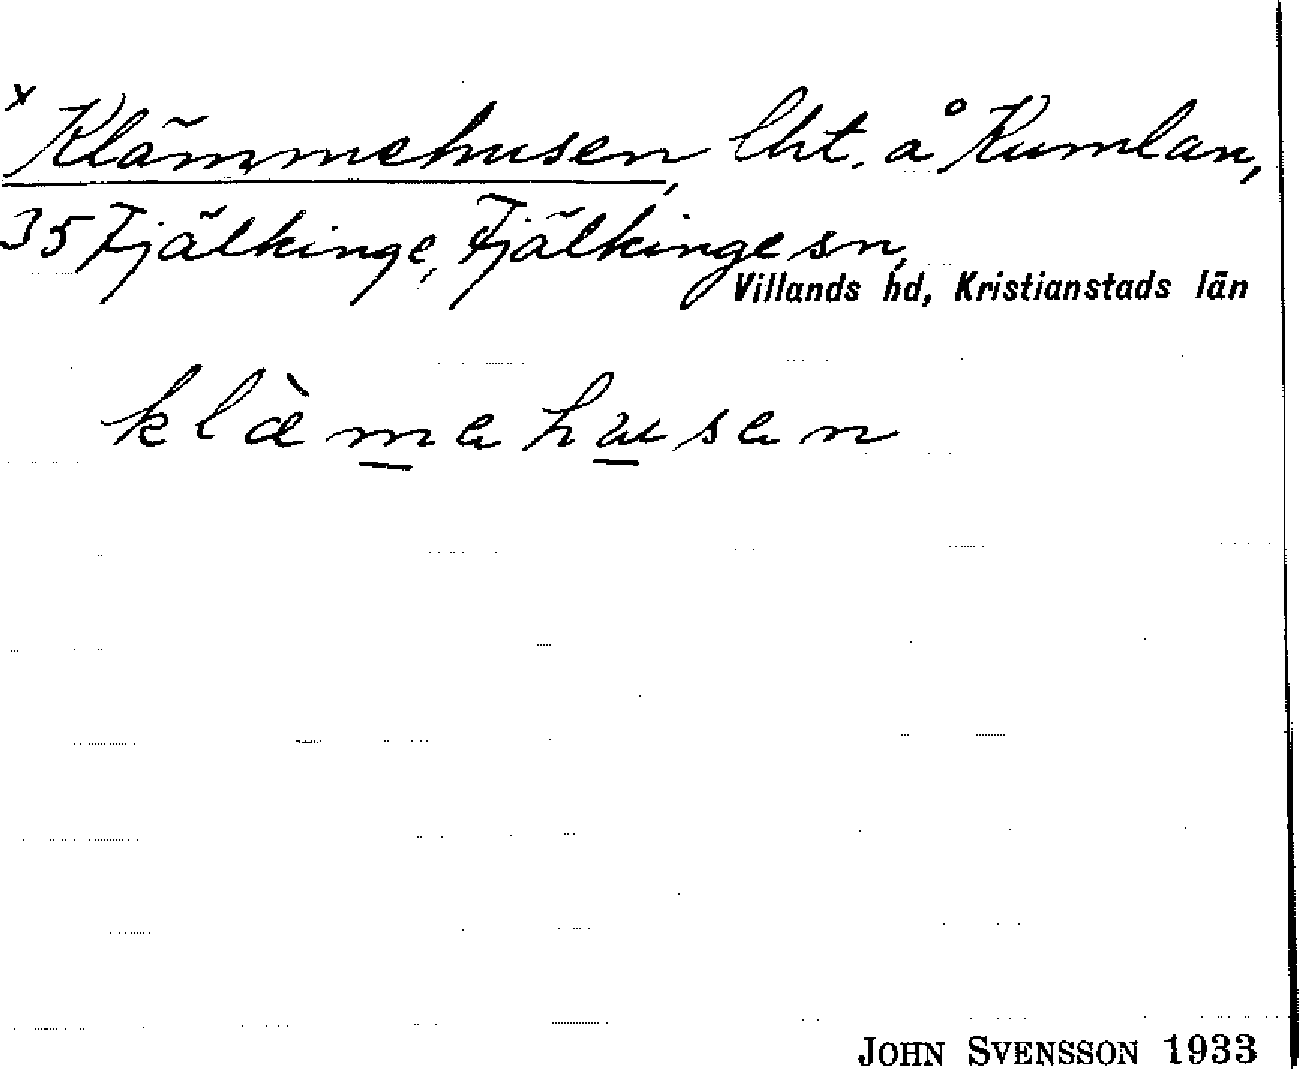 x Klämmehusen, lht. å Kumlan,
35 Fjälkinge, Fjälkinge sn,
Villands hd, Kristianstads län
klæ̀mahusan
JOHN SVENSSON 1933